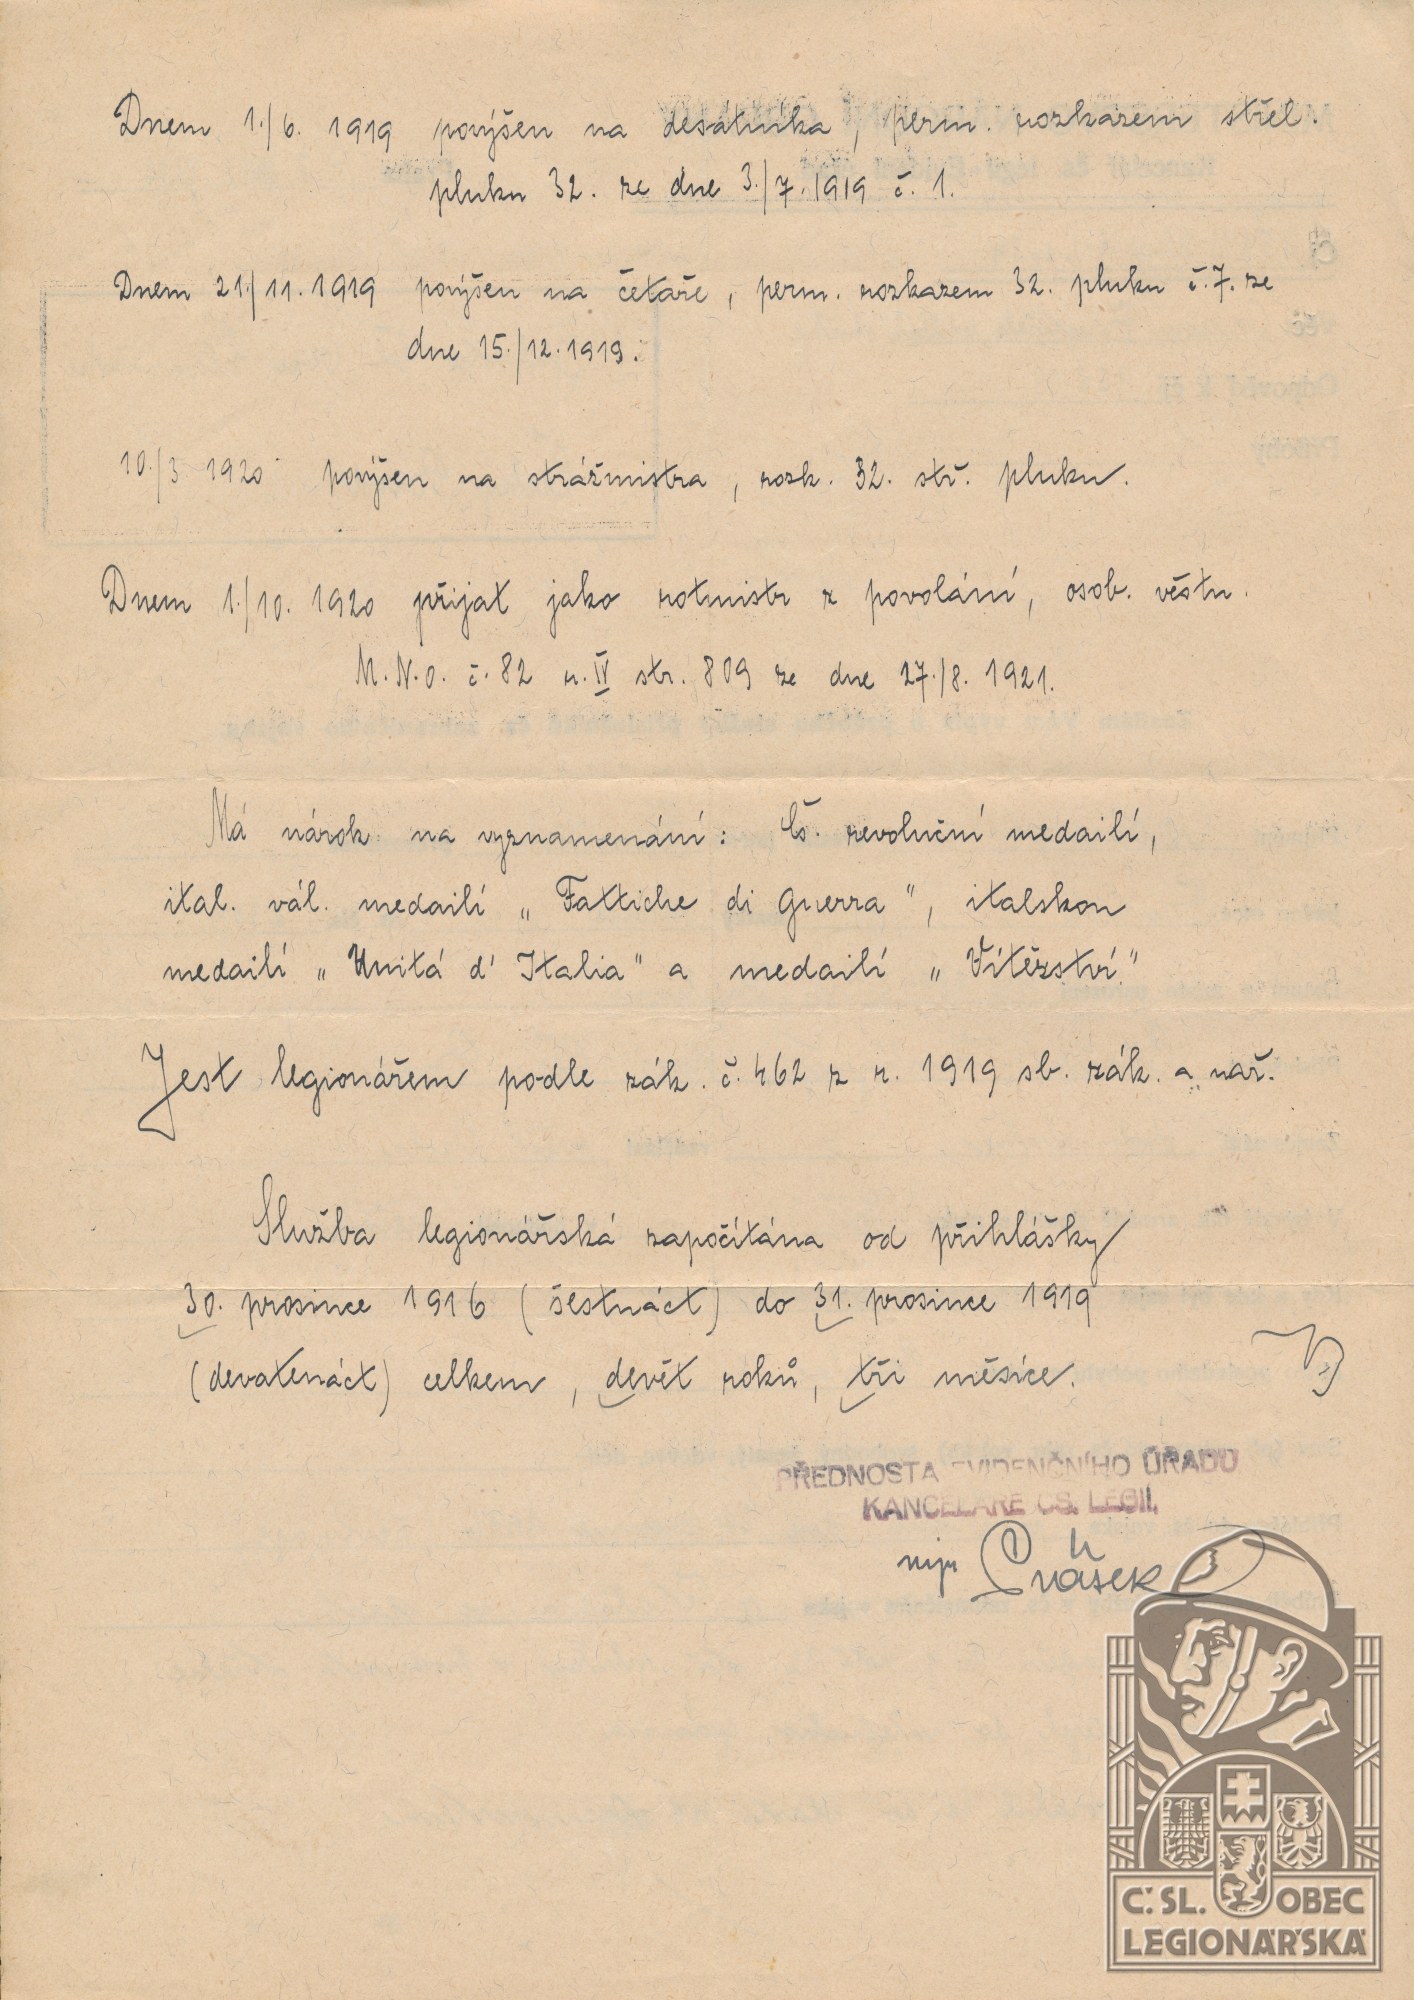 Dnem 1./6. 1919 povýšen na desátníka, perm. rozkazem střel.
pluku 32. ze dne 3./7. 1919 č. 1.
Dnem 21./11. 1919 povýšen na četaře, perm. rozkazem 32. pluku č. 7. ze
dne 15./12. 1919.
10./3 1920 povýšen na strážmistra, rozk. 32. stř. pluku.
Dnem 1./10. 1920 přijat jako rotmistr z povolání, osob. věstn.
M.N.O. č. 82 r. IV str. 809 ze dne 27./8. 1921.
Má nárok na vyznamenání: Čs. revoluční medailí,
ital. vál. medailí „Fattiche di Guerra", italskou
medailí „Unitá d' Italia" a medailí „Vítězství."
Jest legionářem podle zák. č. 462 z r. 1919 sb. zák. a nař.
Služba legionářská započítána od přihlášky
30. prosince 1916 (šestnáct) do 31. prosince 1919
(devatenáct) celkem, devět roků, tři měsíce.
PŘEDNOSTA EVIDENČNÍHO ÚŘADU
KANCELÁŘE ČS. LEGIÍ.
mjr
Č. SL. OBEC
LEGIONÁŘSKÁ